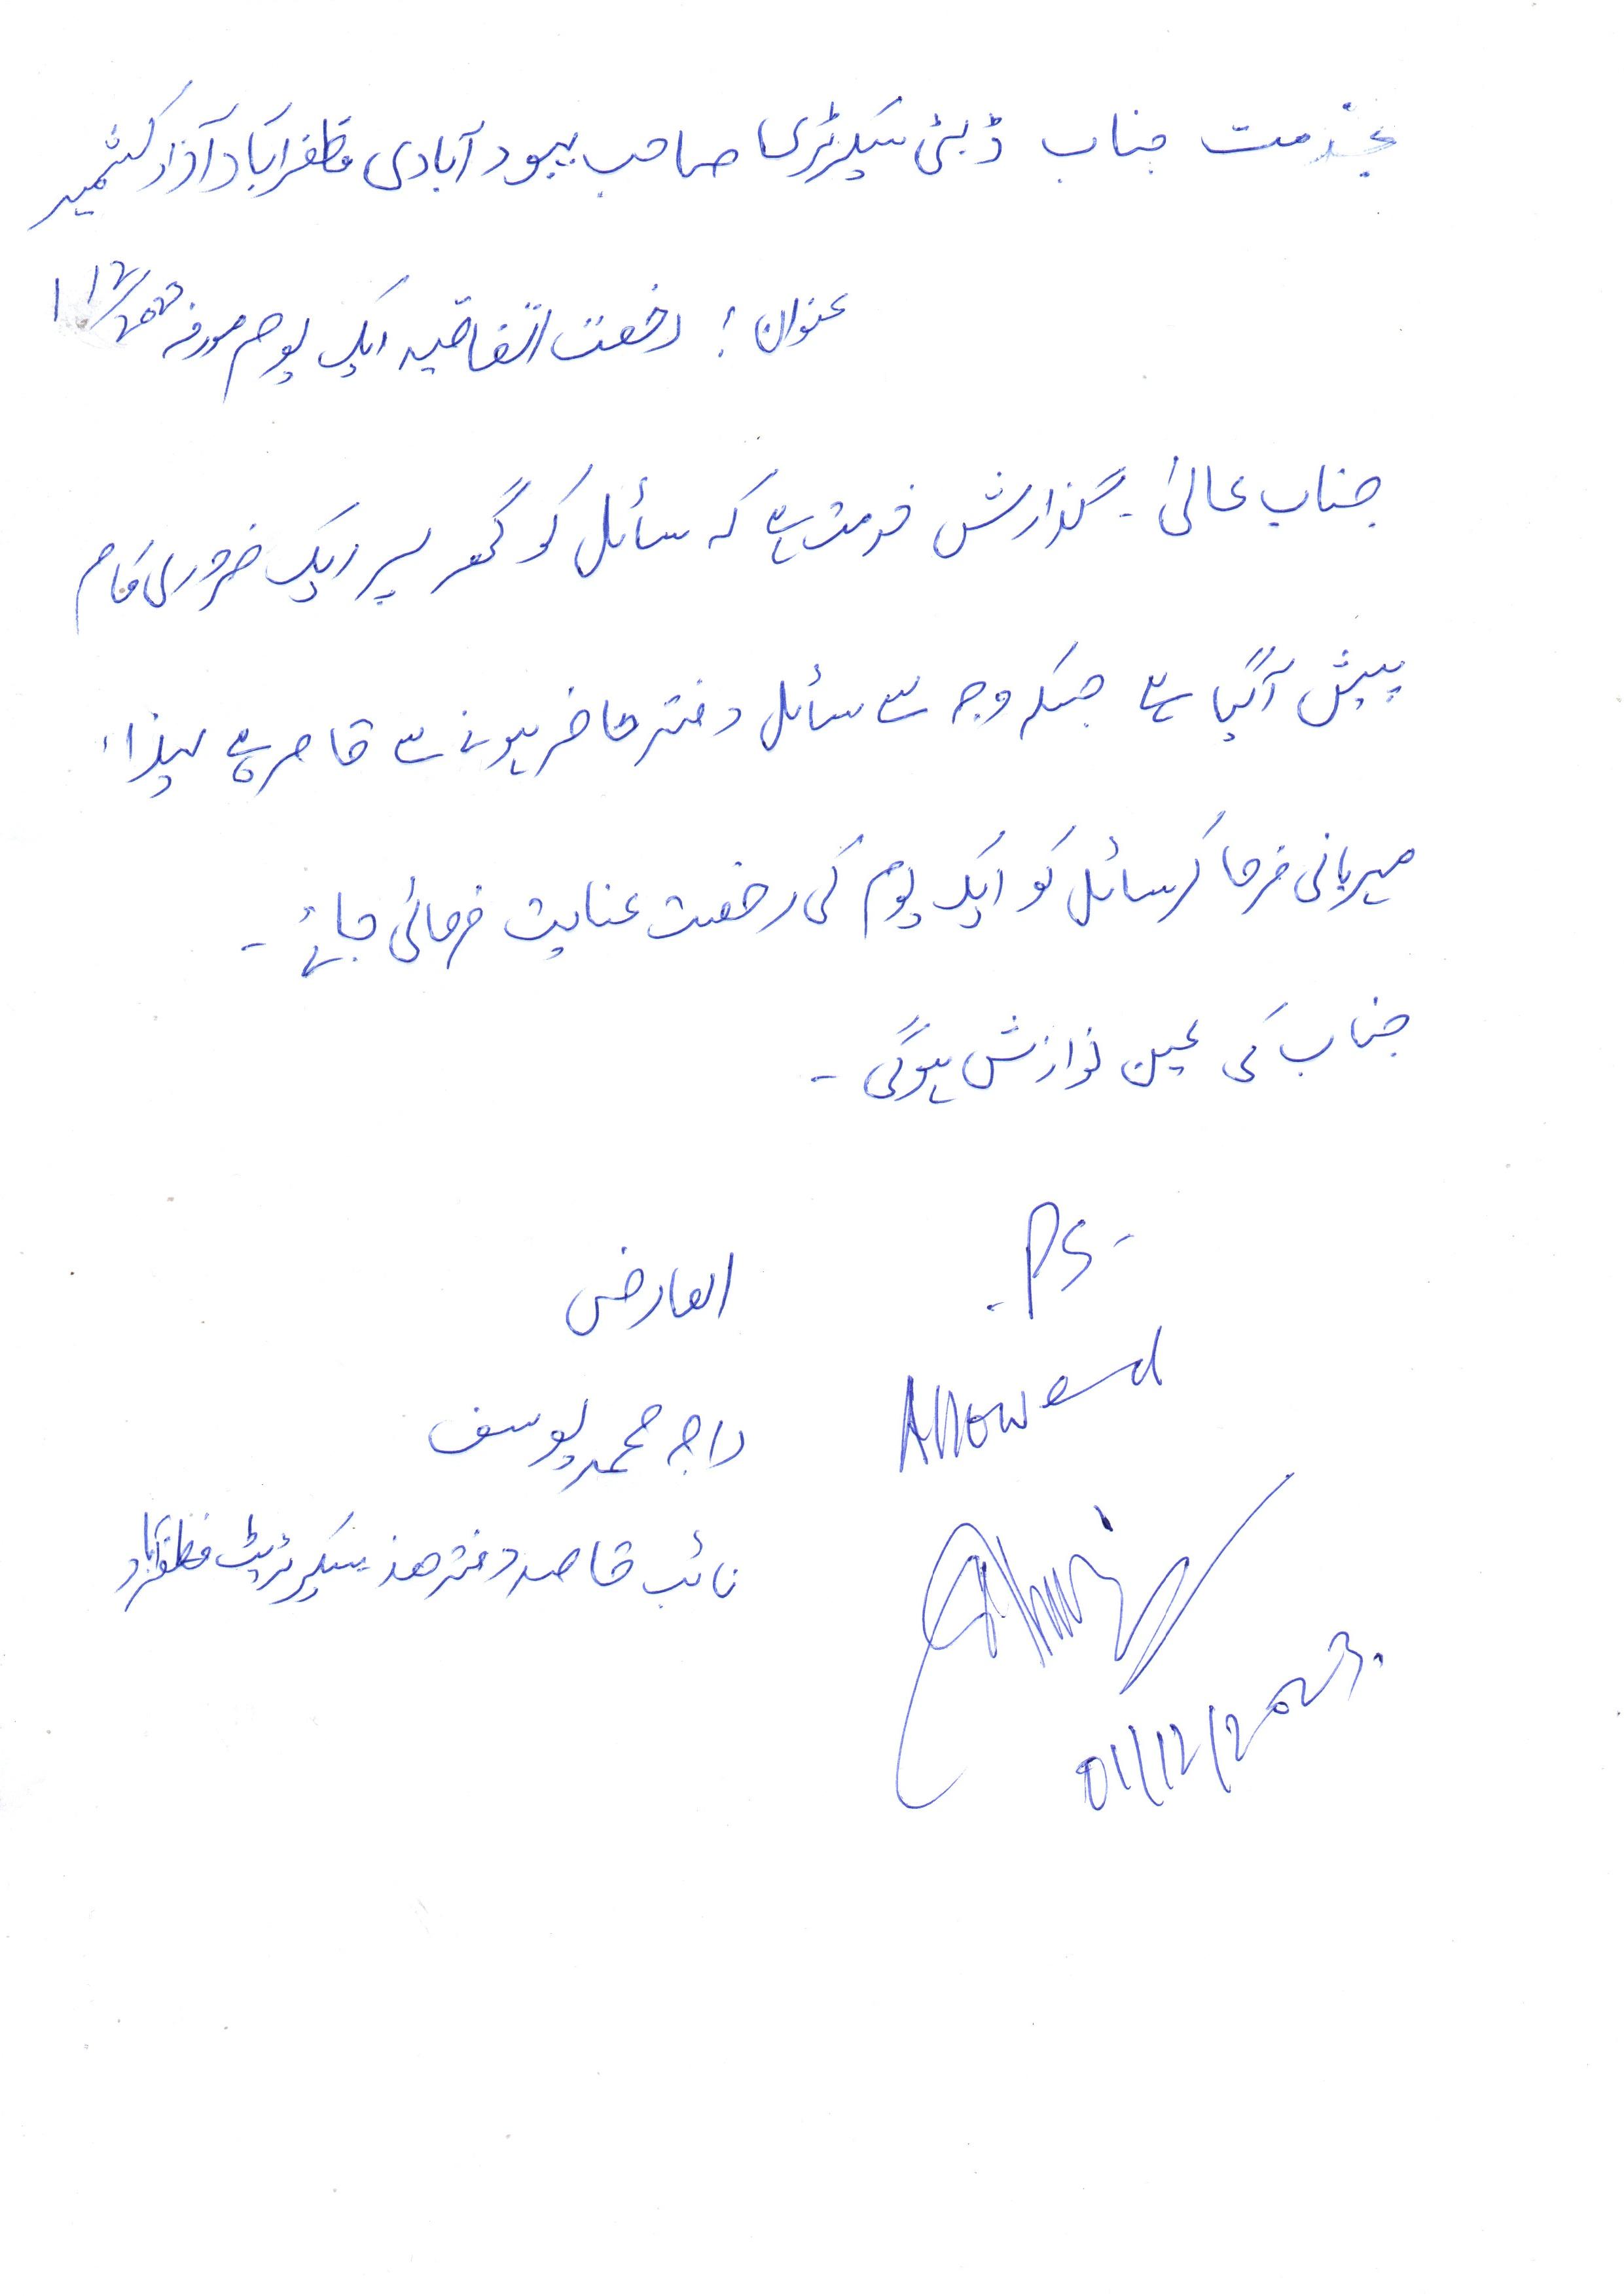 بخدمت جناب ڈپٹی سیکرٹری صاحب بہبود آبادی مظفرآباد آزاد کشمیر
عنوان : رخصت اتفاقیہ ایک یوم مورخہ
جناب عالیٰ ۔ گذارش خدمت ہے کہ سائل کو گھر پر ایک ضروری کام
پیش آگیا ہے جسکی وجہ سے سائل دفتر حاضر ہونے سے قاصر ہے لہذا
مہربانی فرما کر سائل کو ایک یوم کی رخصت عنایت فرمائی جائے ۔
جناب کی عین نوازش ہوگی ۔
PS
العارض
Allowed
راجہ محمد یوسف
نائب قاصد دفتر ھذا سیکرٹریٹ مظفرآباد
01/12/2023.